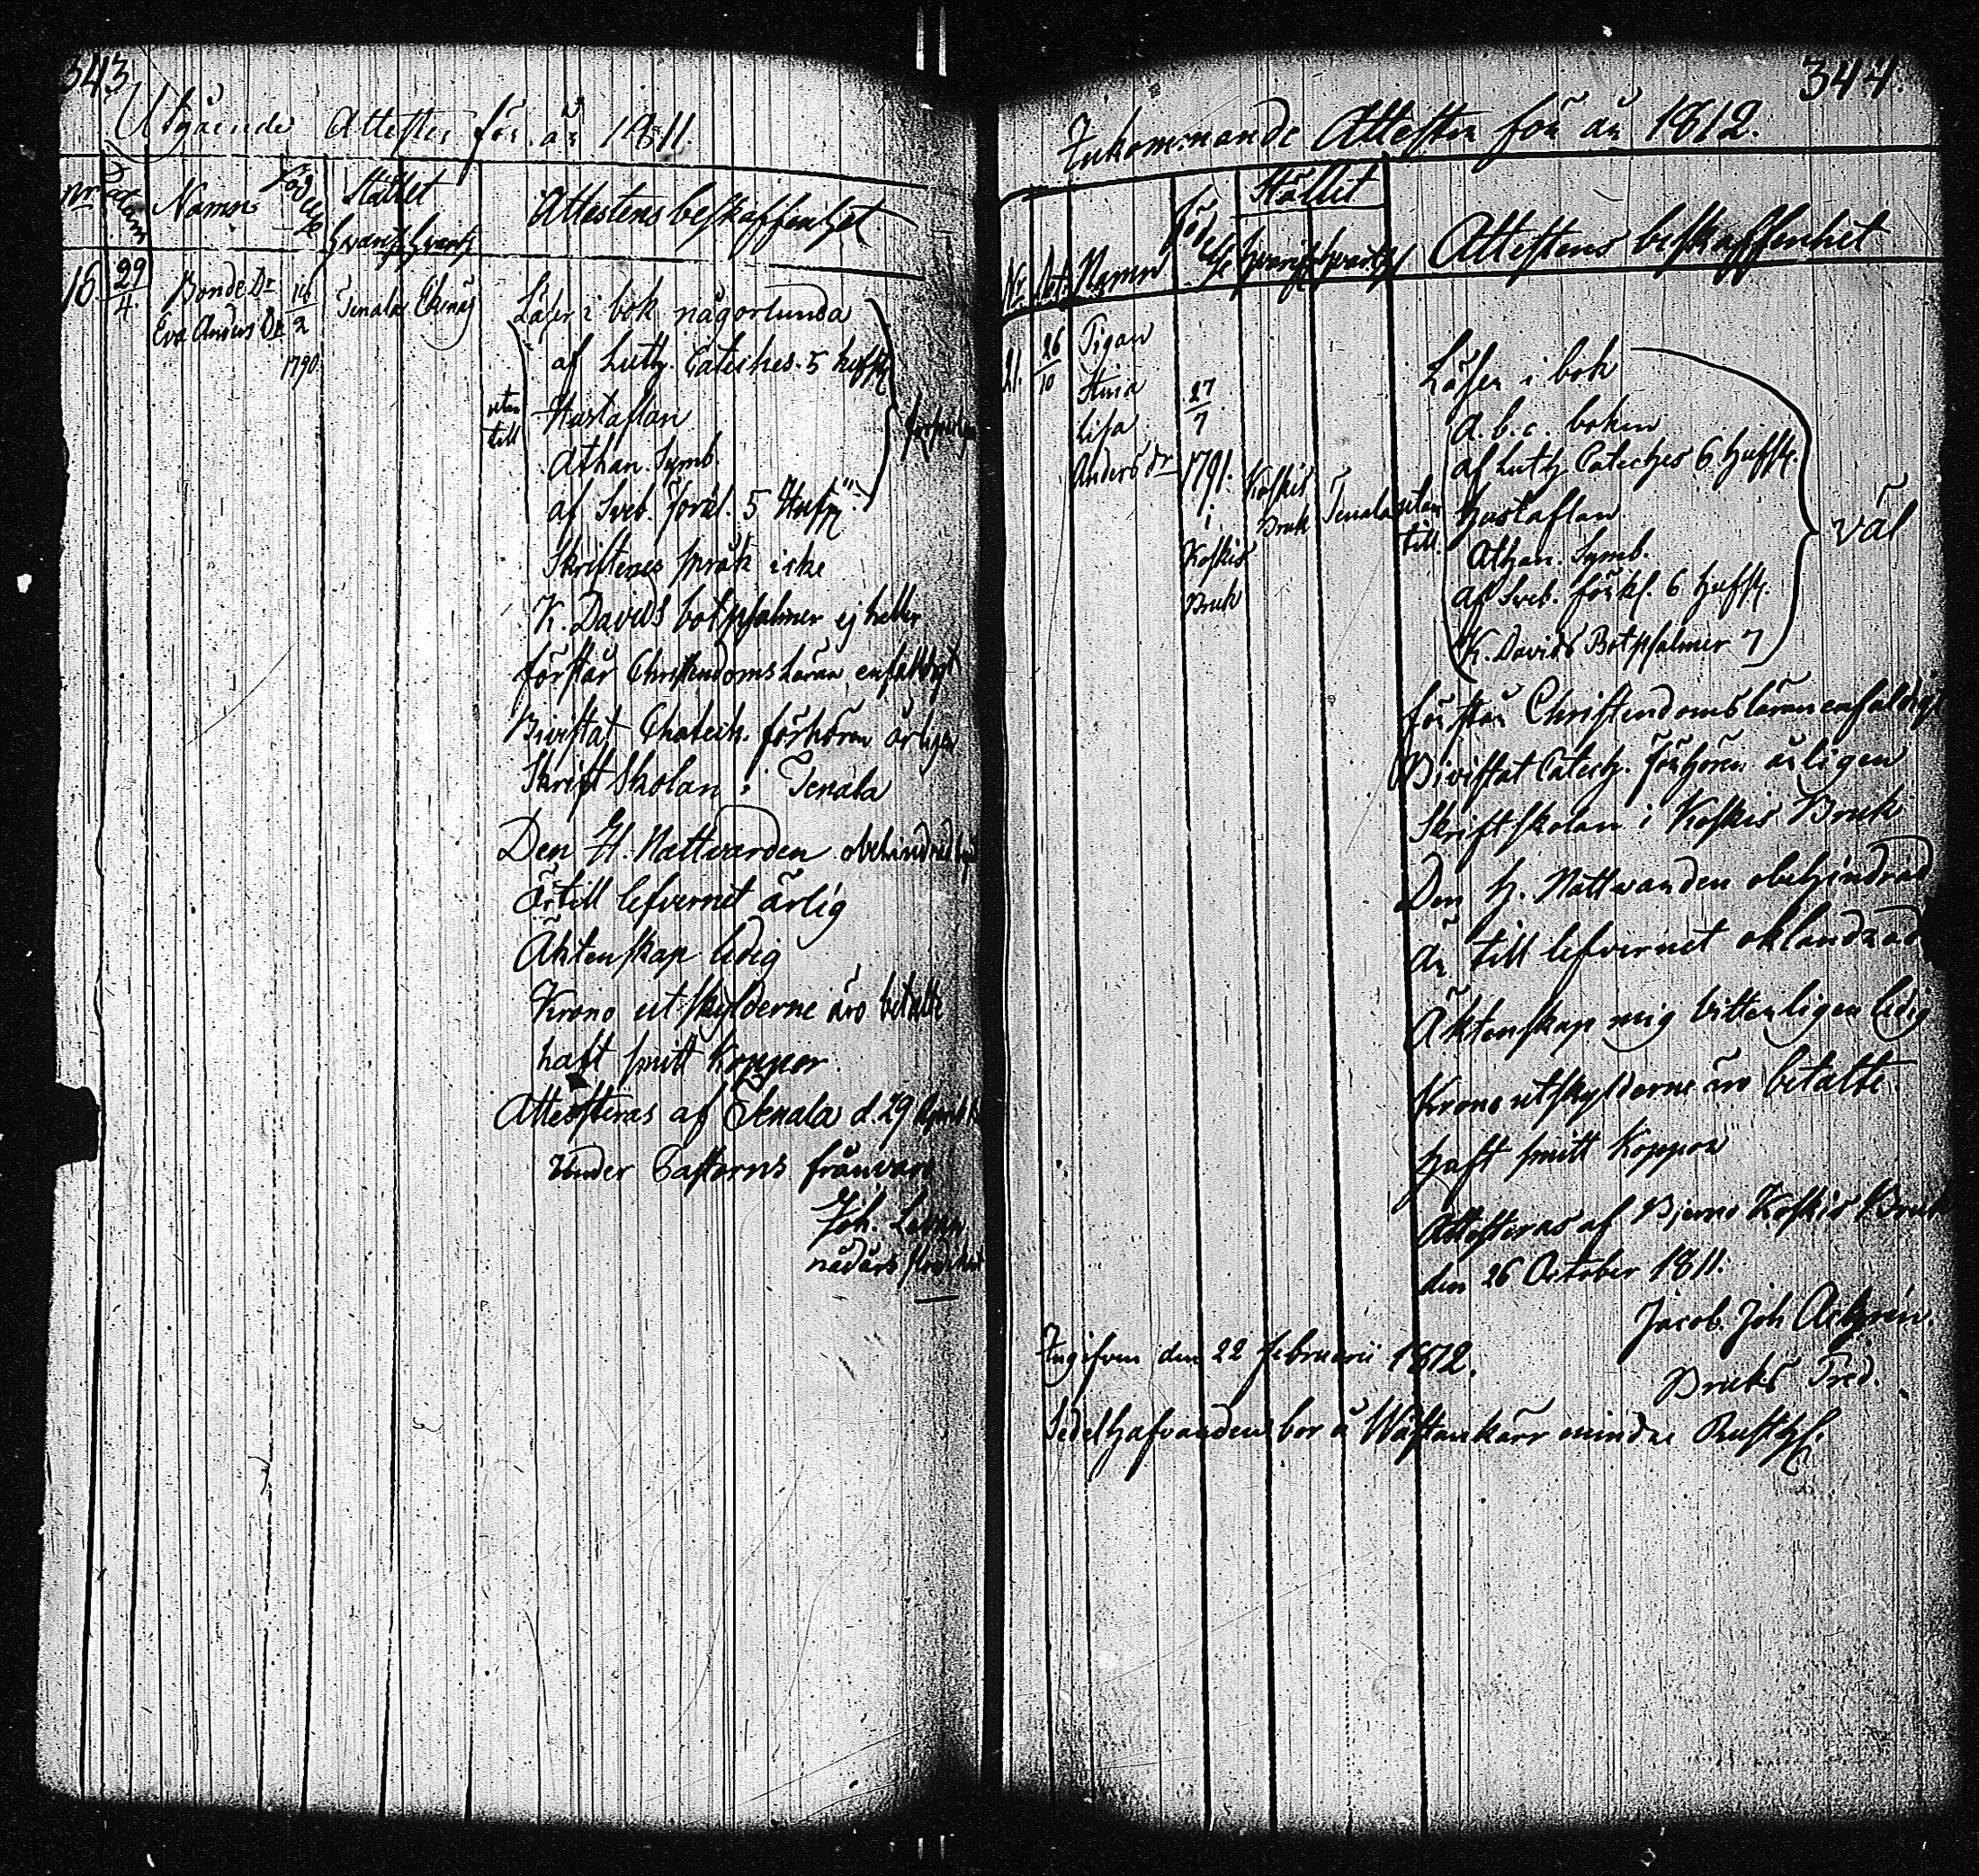 343
Utgående Attester för år 1811.
Nr Datum Namn Födelse Stället hvarifr. hvart Attestens beskaffenhet
16. 29/4 Bonde Dr Eva Anders Dr 16/2 1790 Tenala Ekenäs
Läser i bok någorlunda
af Luth. Cateches. 5 huffst.
utan till
Hustaflan
Athan. Symb.
af Sveb. förkl. 5 Hufst.
Skriftenes språk icke
K. Davids botpsalmer ej heller
förstår Christendoms Läran enfaldigt
Bivistat Chatech. förhören årligen
Skrift Skolan i Tenala
Den H. Nattvarden obehindrad
Är till lefvernet ärlig
Äktenskap ledig
Krono utskylderne äro betalte
haft smitt koppor.
Attesteras af Tenala d. 29 April
under Pastorns frånvaro
Joh.
nådårs predikant
344.
Inkommande Attester för år 1812.
Nr. Dat. Namn Födelse Stället hvarifr. hvart Attestens beskaffenhet
21. 26/10 Pigan Stina Lisa Anders dr 27/7 1791. i Koskis Bruk Koskis Bruk Tenala
Läser i bok
a. b. c. boken
af Luth. Cateches 6 hufst.
utan till.
hustaflan
Athan. Symb.
af Sveb. förkl. 6 hufst.
K. Davids Botpsalmer 7
väl
förstår Christendomsläran enfaldigt
Bivistat Catech. förhören årligen
Skriftskolan i Koskis Bruk
Den h. Nattvarden obehindrad
är till lefvernet oklandrad
Äktenskap mig vitterligen ledig
Krono utskylderne äro betalte.
haft smitt koppor
Attesteras af Bjerno Koskis Bruk
den 26 October 1811.
Jacob. Joh
Bruks Pred.
Ingifven den 22 februarii 1812.
Sedelhafvanden bor å Wästankärr mindre Rusth.